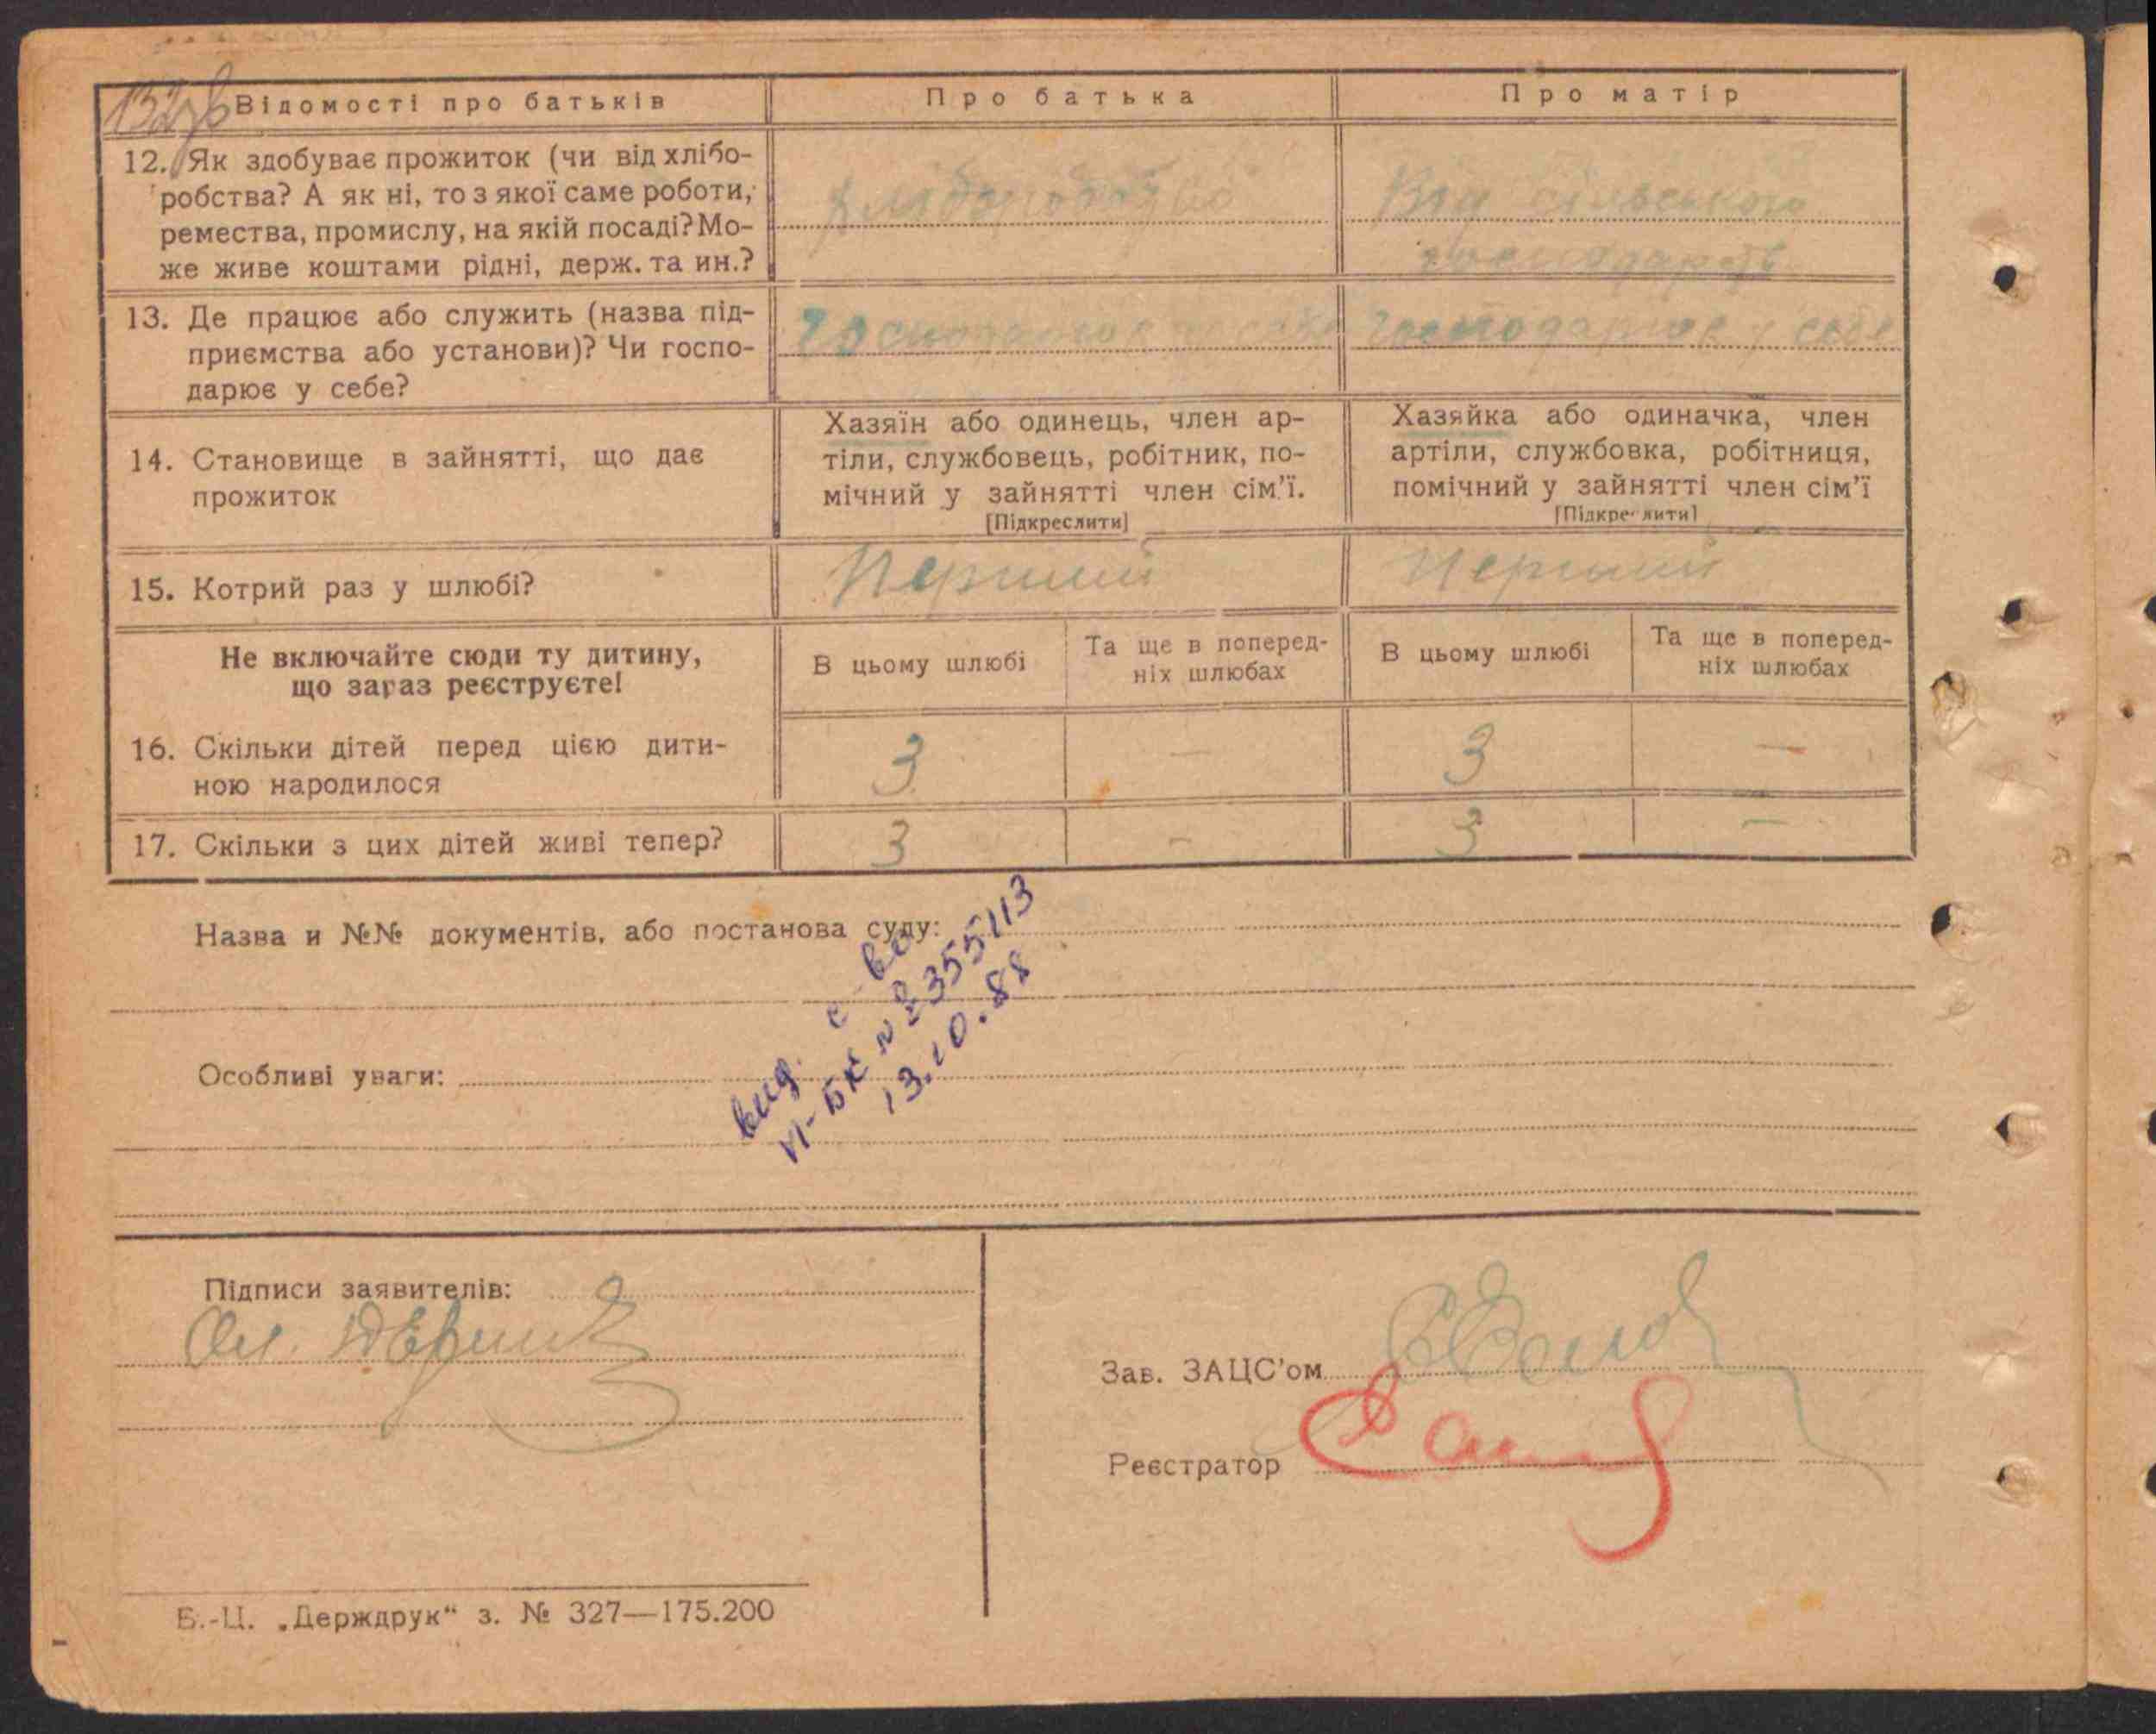 132зв
Відомості про батьків
Про батька
Про матір
12. Як здобуває прожиток (чи від хлібо-
робства? А як ні, то з якої саме роботи,
ремества, промислу, на якій посаді? Мо-
же живе коштами рідні, держ. та ин.?
хліборобство
Від сільського
господарств
13. Де працює або служить (назва під-
приємства або установи)? Чи госпо-
дарює у себе?
господарює у себе
господарює у себе
14. Становище в зайнятті, що дає
прожиток
Хазяїн або одинець, член ар-
тіли, службовець, робітник, по-
мічний у зайнятті член сім'ї.
[Підкреслити]
Хазяйка або одиначка, член
артіли, службовка, робітниця,
помічний у зайнятті член сім'ї
[Підкреслити]
15. Котрий раз у шлюбі?
Перший
Перший
Не включайте сюди ту дитину,
що зараз реєструєте!
В цьому шлюбі
Та ще в поперед-
ніх шлюбах
В цьому шлюбі
Та ще в поперед-
ніх шлюбах
16. Скільки дітей перед цією дити-
ною народилося
3
—
3
—
17. Скільки з цих дітей живі тепер?
3
—
3
—
Назва и №№ документів, або постанова суду:
Особливі уваги:
вид. с-во
VI-БК № 2355113
13.10.88
Підписи заявителів:
Зав. ЗАЦС'ом
Реєстратор
Б.-Ц. „Держдрук“ з. № 327—175.200